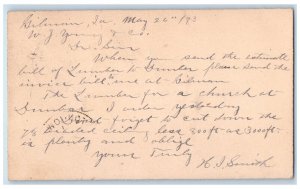 Gilman, Ia, May 26"/93
W J Young & Co.
Dr Sirs
When you send the estimate
bill of Lumber to Dunbar please send the
invoice bill me at Gilman
The Lumber for a church at
Dunbar I order yesterday
Dont forget to cut down the
7/8 Beaded Ceil'g less 300ft as 3000ft
is plenty and oblige
Yours Truly
H. J. Smith